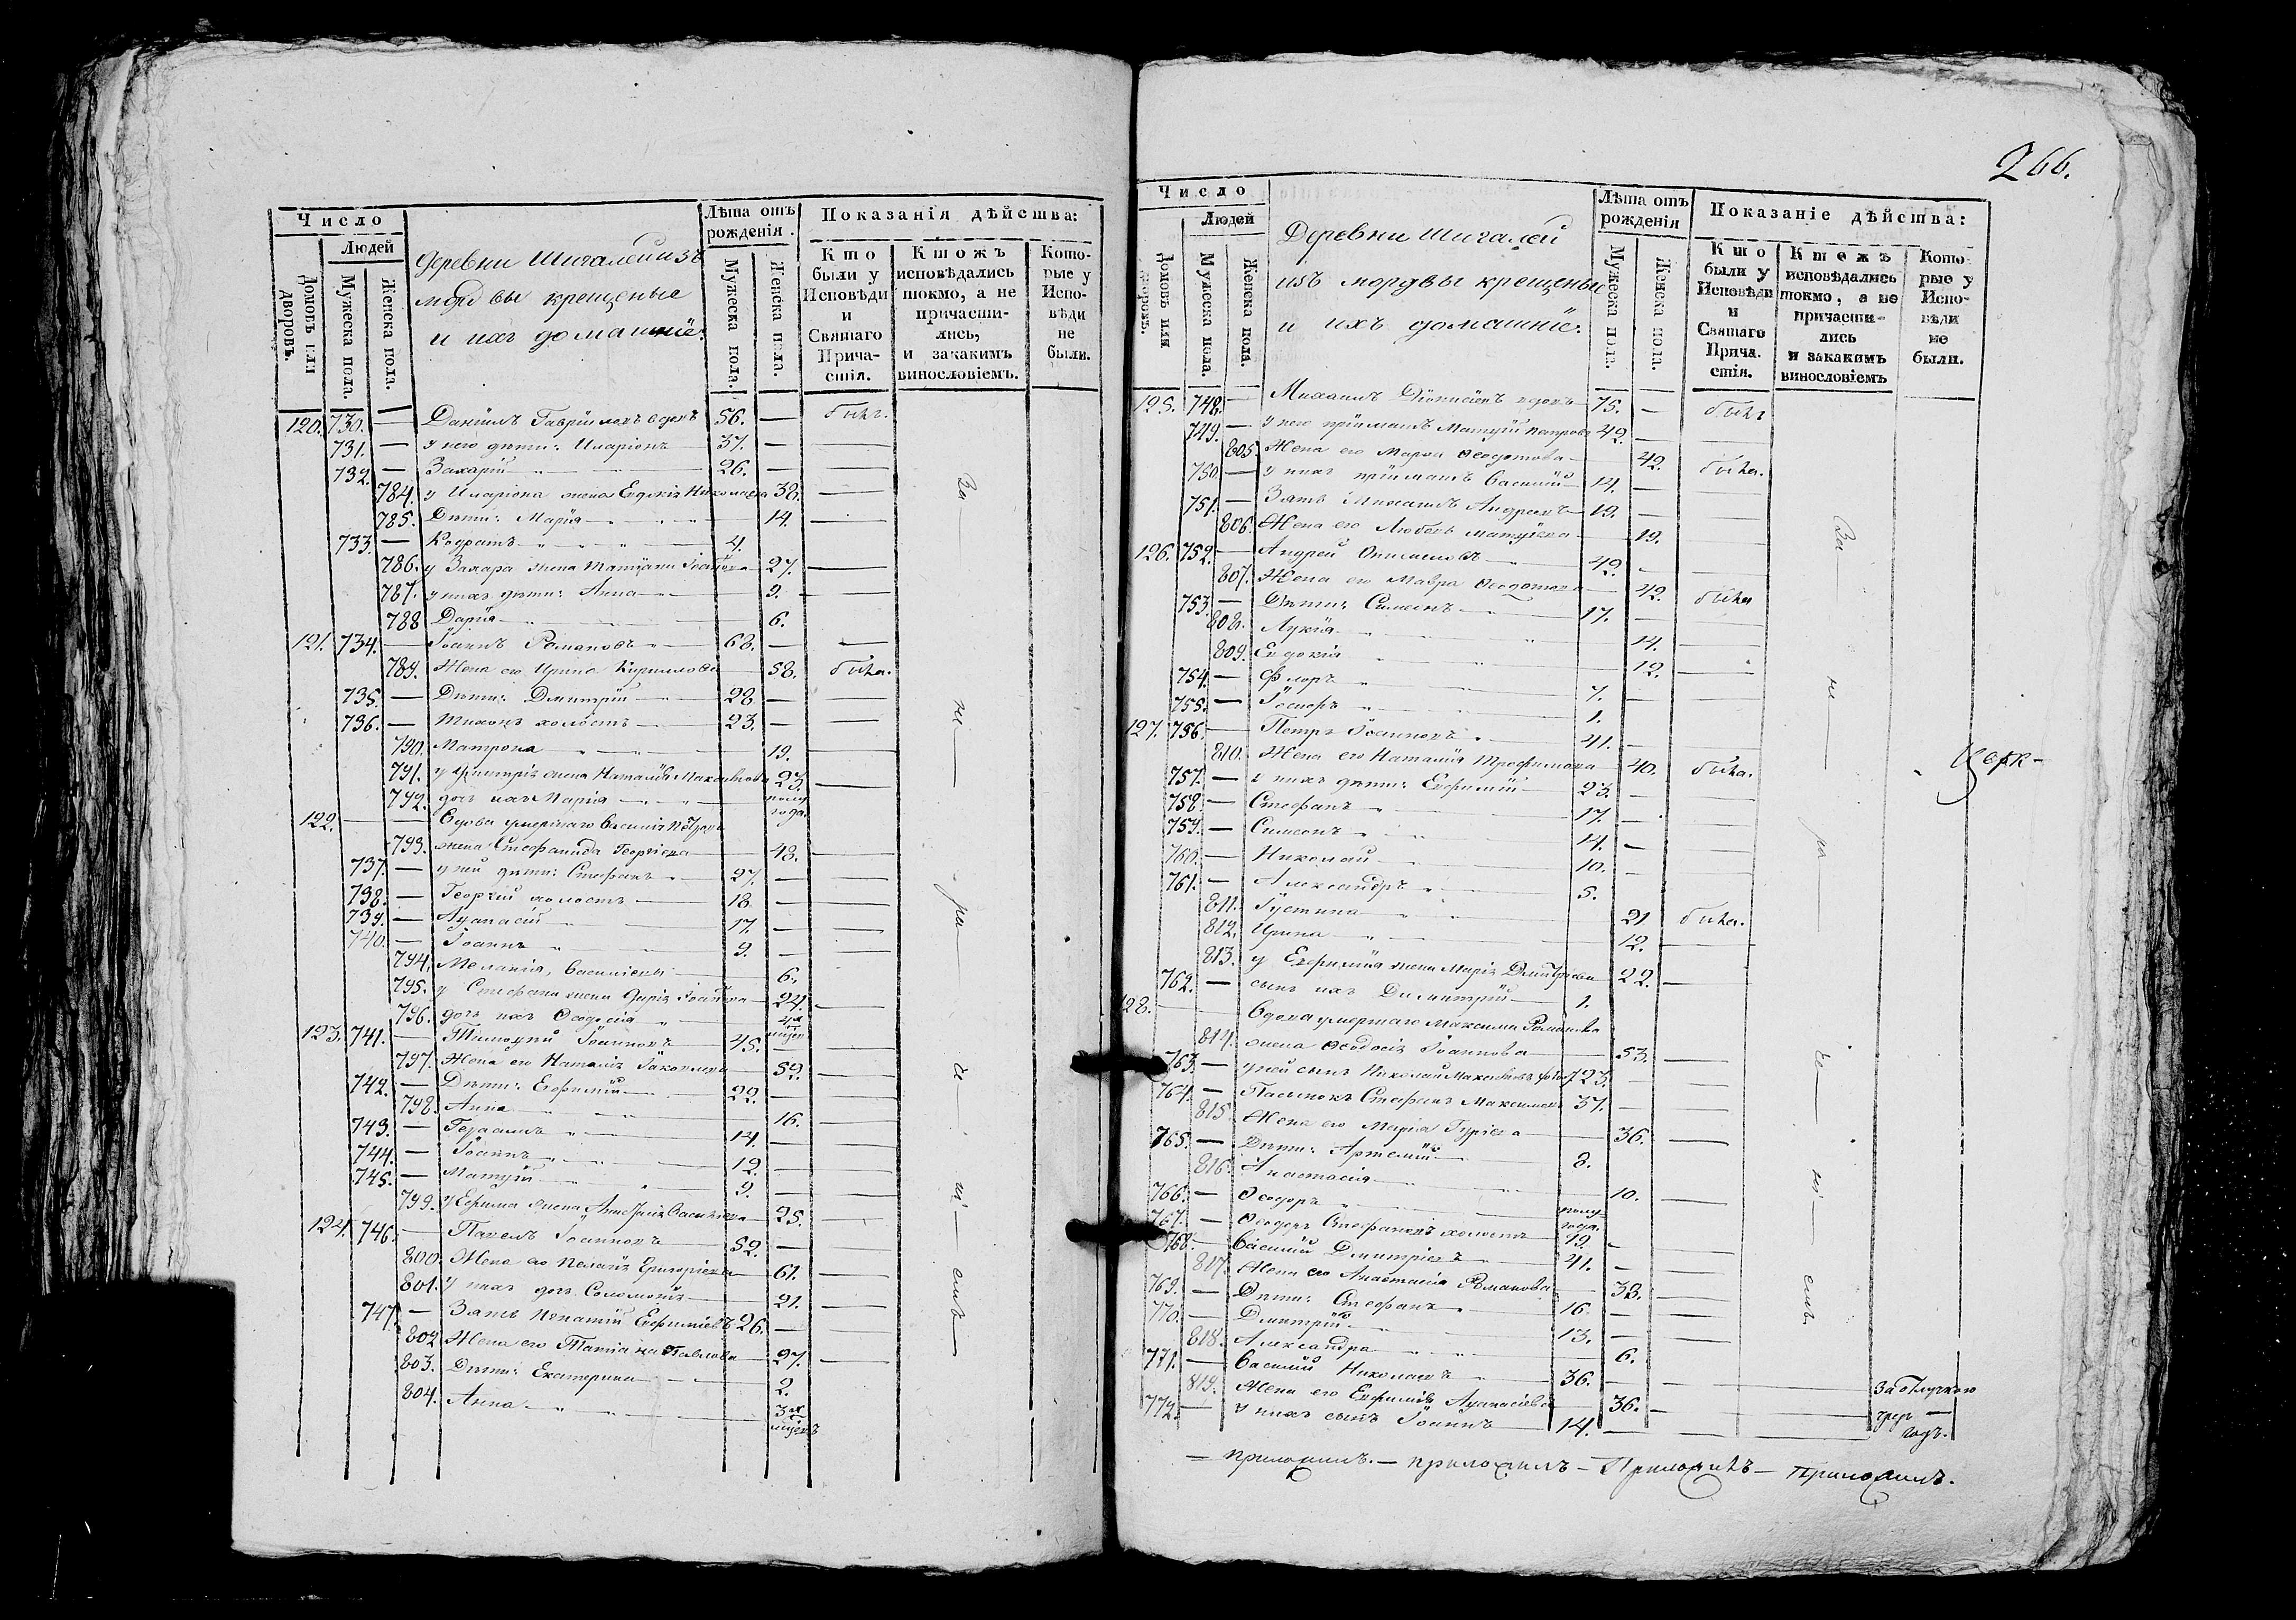 Число
Людей
Домовъ или дворовъ.
Мужеска пола.
Женска пола.
Деревни Шигалеи изъ
мордвы крещеные
и ихъ домашніе.
Лѣта отъ рожденія.
Мужеска пола.
Женска пола.
Показанія дѣйства:
Кто были у Исповѣди и Святаго Прича-стія.
Ктожъ исповѣдались токмо, а не причасти-лись, и закакимъ винословіемъ.
Кото-рые у Испо-вѣди не были.
120. 730. — Даніилъ Гавриловъ вдовъ 56. — былъ.
731. — у него дѣти: Иларіонъ 37. —
732. — Захарій 26. —
784. у Иларіона жена Евдокія Николаева 38. —
785. Дѣти: Марія 14. —
733. — Кодратъ 4.
786. у Захара жена Татіана Іоаннова 27. —
787. у нихъ дѣти: Анна 9. —
788 Дарія 6.
121. 734. — Іоаннъ Романовъ 68. — —
789. Жена его Ирина Кириллова 58. была.
735. — Дѣти: Димитрій 28. — —
736. — Тихонъ холостъ 23. — —
790. Матрона 19. —
791. у Димитрія жена Наталія Максимова 23. —
792. дочь ихъ Марія полу года
122. — — Вдова умершаго Василія Петрова
793. жена Стефанида Георгіева 48. —
737. — у ней дѣти: Стефанъ 27. — —
738. — Георгій холостъ 18. — —
739. — Аѳанасій 17. — —
740. — Іоаннъ 9. —
794. Меланія Васильева 6.
795. у Стефана жена Дарія 24. —
796. дочь ихъ Ѳеодосія
123. 741. — Тимоѳей Іоанновъ 45. —
797. Жена его Наталія Іаковлева 52. —
742. — Дѣти: Евфимій 22. — —
798. Анна 16. —
743. — Герасимъ 14. — —
744. — Іоаннъ 12. — —
745. — Матѳей 9. — —
799. у Евфима жена Васильева 25. —
124. 746. — Павелъ Іоанновъ 52. — —
800. Жена его Григоріева 61. —
801. у нихъ дочь Соломонія 21. —
747. — Зять Игнатій Евфиміевъ 26. — —
802 Жена его Татіана Павлова 27. —
803. Дѣти: Екатерина 2.
804. Анна 3хъ
За — не — ра — че — ні — емъ —
266.
Число
Людей
Домовъ или дворовъ.
Мужеска пола.
Женска пола.
Деревни Шигалеи
изъ мордвы крещеные
и ихъ домашніе.
Лѣта отъ рожденія
Мужеска пола.
Женска пола.
Показаніе дѣйства:
Кто были у Исповѣди и Святаго Прича-стія.
Ктожъ исповѣдались токмо, а не причасти-лись и закакимъ винословіемъ
Кото-рые у Испо-вѣди не были.
125. 748. — Михаилъ Діонисіевъ вдовъ 75. — былъ
749. — у него пріимышъ Матѳей Петровъ 42. — —
805 Жена его Марѳа Ѳеодотова 42. была.
750. — у нихъ пріимышъ Василій 14. — —
751. — Зять Михаилъ Андреевъ 19. — —
806. Жена его Любовь Матѳіева 19. —
126. 752. — Андрей 42. — —
807. Жена его Мавра Ѳеодотова 42. была
753. — Дѣти: Симеонъ 17. — —
808. Лукія 14. —
809. Евдокія 12. —
754. — Флоръ 7. — —
755. — Іосифъ 1.
127. 756. — Петръ Іоанновъ 41. — —
810. Жена его Наталія Трофимова 40. была.
757. — у нихъ дѣти: Евфимій 23. — —
758. — Стефанъ 17. — —
759. — Симеонъ 14. — —
760. — Николай 10. — —
761. — Александръ 5.
811. Іустина 21 была.
812. Ирина 12. —
813. у Евфимія жена Марія Дмитріева 22. —
762. — сынъ ихъ Димитрій 1.
128. — Вдова умершаго Максима Романова
814. жена Ѳеодосія Іоаннова 53. —
763. — у ней сынъ Николай Максимовъ 23. — —
764. — Пасынокъ Стефанъ Максимовъ 37. — —
815. Жена его Марія Гуріева 36. —
765. — Дѣти: Артемій 8. —
816. Анастасія 10. —
766. — Ѳеодоръ полу года.
767. — Ѳеодоръ Стефановъ холостъ 19. — —
768. — Василій Димитріевъ 41. — —
817. Жена его Анастасія Романова 38. —
769. — Дѣти: Стефанъ 16 — —
770. — Дмитрій 13. — —
818. Александра 6. —
771. — Василій Николаевъ 36. —
819. Жена его Евфимія Аѳанасіева 36. —
772. — у нихъ сынъ Іоаннъ 14. —
За отлучкою
чрез —
годъ.
За — не — ра — че — ні — емъ.
Церк-
— приложилъ. — приложилъ — Приложилъ — Приложилъ.